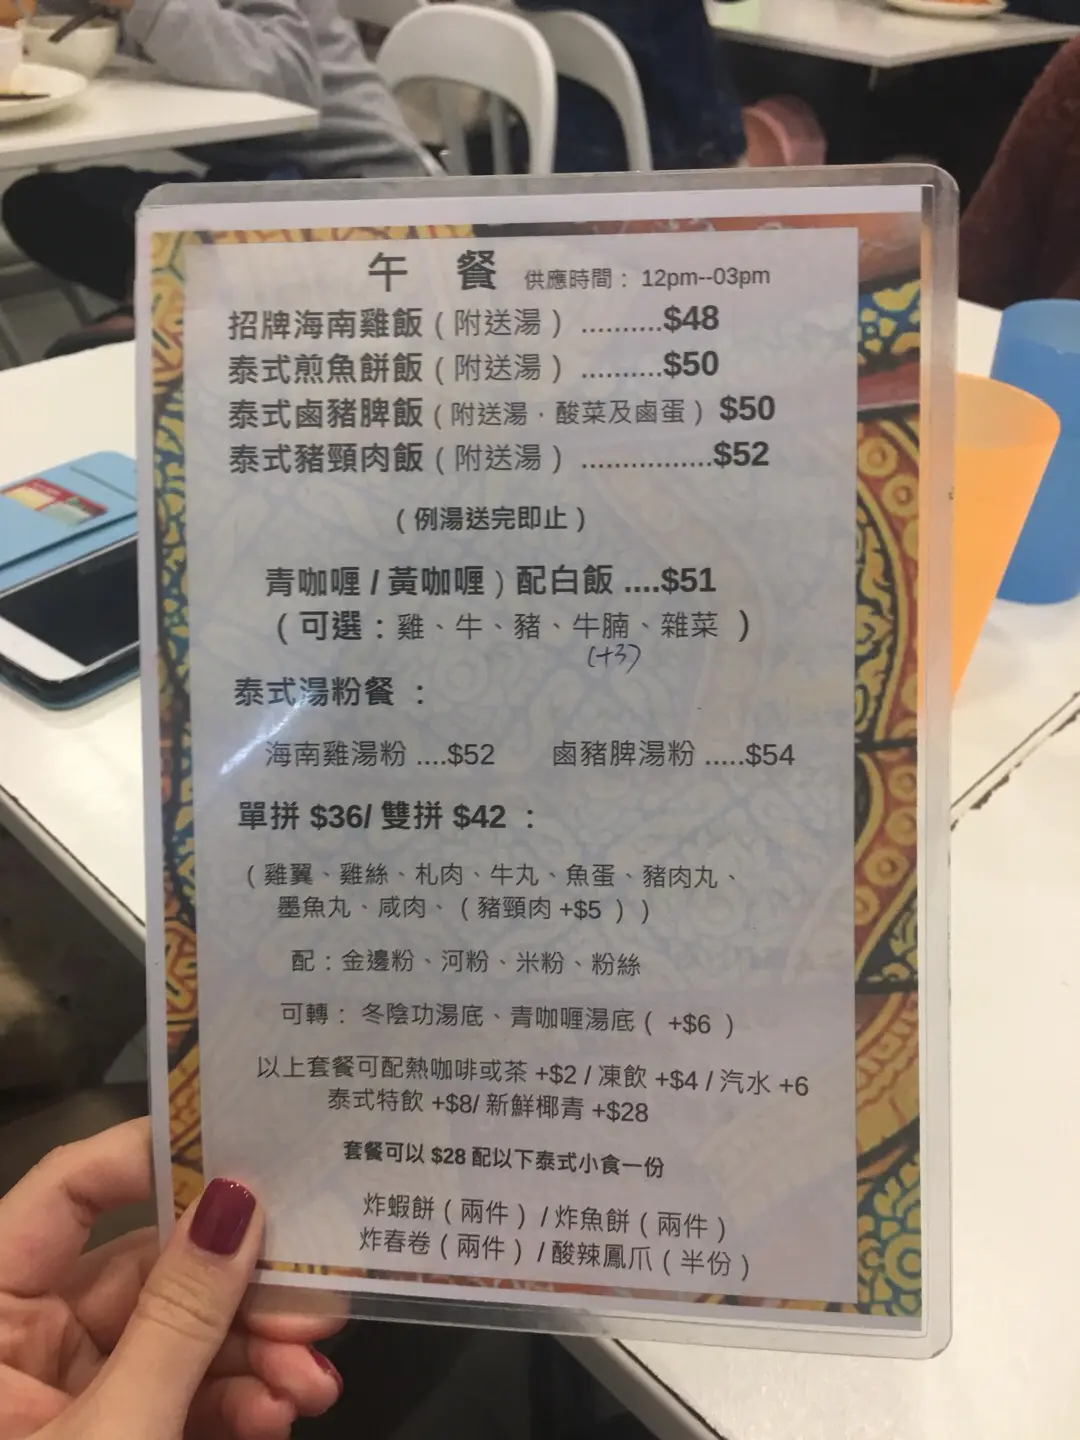 午 餐 供應時間： 12pm--03pm
招牌海南雞飯（附送湯）..........$48
泰式煎魚餅飯（附送湯）..........$50
泰式鹵豬脾飯（附送湯，酸菜及鹵蛋）$50
泰式豬頸肉飯（附送湯）................$52
（例湯送完即止）
青咖喱 / 黃咖喱）配白飯 ....$51
（可選：雞、牛、豬、牛腩、雜菜 ）
(+3)
泰式湯粉餐 ：
海南雞湯粉 ....$52 鹵豬脾湯粉 .....$54
單拼 $36/ 雙拼 $42 ：
（雞翼、雞絲、札肉、牛丸、魚蛋、豬肉丸、
墨魚丸、咸肉、（豬頸肉 +$5 ））
配：金邊粉、河粉、米粉、粉絲
可轉： 冬陰功湯底、青咖喱湯底（ +$6 ）
以上套餐可配熱咖啡或茶 +$2 / 凍飲 +$4 / 汽水 +6
泰式特飲 +$8/ 新鮮椰青 +$28
套餐可以 $28 配以下泰式小食一份
炸蝦餅（兩件）/ 炸魚餅（兩件）
炸春卷（兩件）/ 酸辣鳳爪（半份）